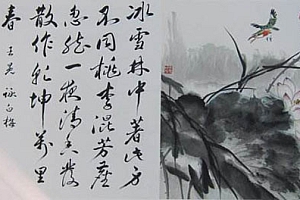 冰雪林中著此身
不同桃李混芳塵
忽然一夜清香發
散作乾坤萬里
春 王冕 詠白梅